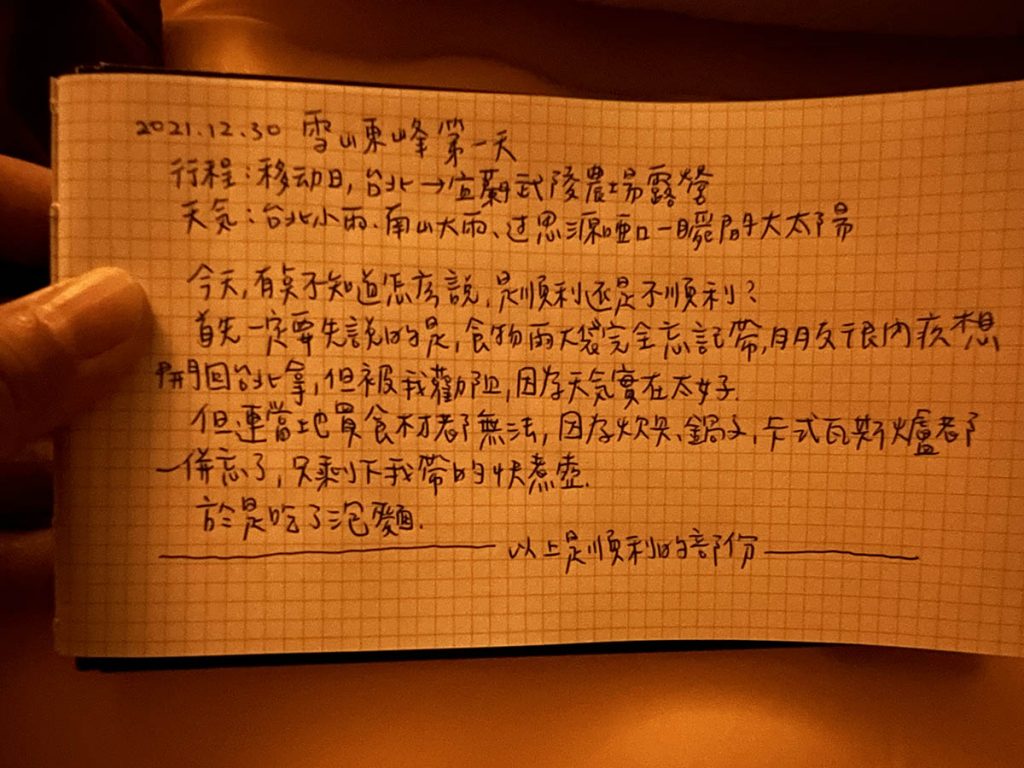 2021.12.30 雪山東峰 第一天
行程：移动日，台北→宜蘭武陵農場露營
天気：台北小雨、南山大雨、过思源啞口一瞬間大太陽
今天，有点不知道怎么說，是順利还是不順利？
首先一定要先説的是，食物兩大袋完全忘記帶，朋友很内疚想
開回台北拿，但被我勸阻，因为天氣實在太好.
但連當地買食材都無法，因为炊具、鍋子、卡式瓦斯爐都
一併忘了，只剩下我帶的快煮壺.
於是吃了泡麵.
以上是順利的部份